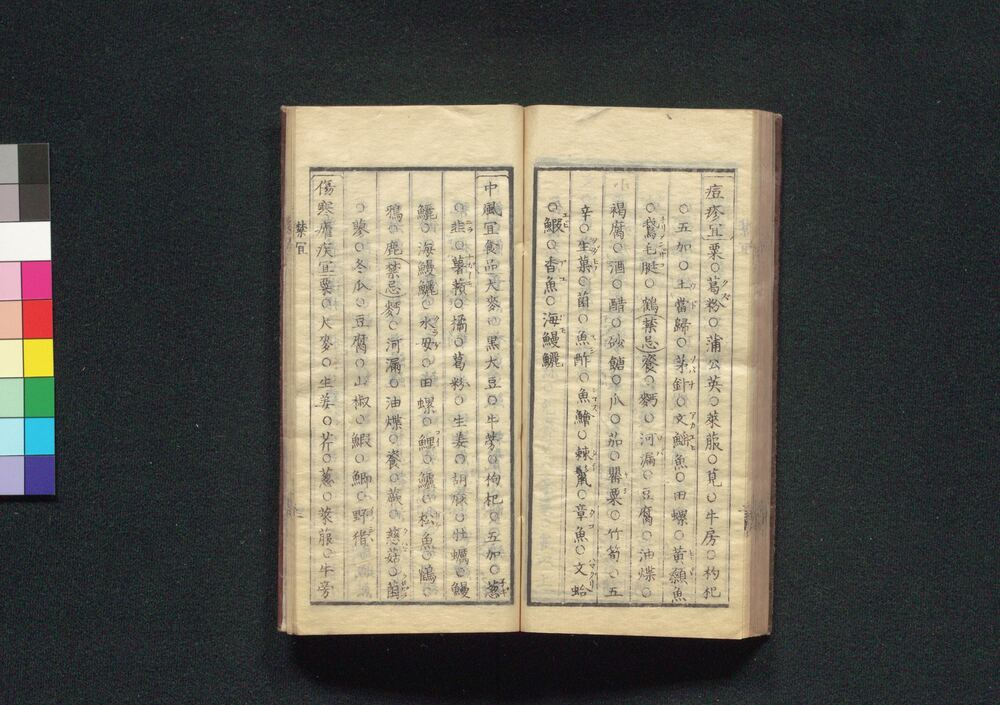 痘疹宜(粟○葛粉○蒲公英○萊服○莧○牛房○枸杞
○五加○土當歸○茅針○文鰩魚○田螺○黄顙魚
○鵞毛脡○鶴(禁忌)餈○麪○河漏○豆腐○油煠○
褐腐○酒○醋○砂糖○瓜○茄○罌粟○竹筍○五
辛○生菓○菌○魚酢○魚鱠○棘鬣○章魚○文蛤
○鰕○香魚○海鰻鱺
中風宜食品(大麥○黒大豆○牛蒡○枸杞○五加○葱
○韭○薯蕷○橘○葛粉○生姜○胡麻○牡蠣○鰻
鱺○海鰻鱺○水母○田螺○鯉○鱸○松魚○鶴○
鴉○鹿(禁忌)麪○河漏○油煠○餈○蕨○慈菇○菌
○蓼○冬瓜○豆腐○山椒○鰕○鰤○野猪
傷寒瘧疾宜(粟○大麥○生姜○芥○葱○萊服○牛旁
禁宜